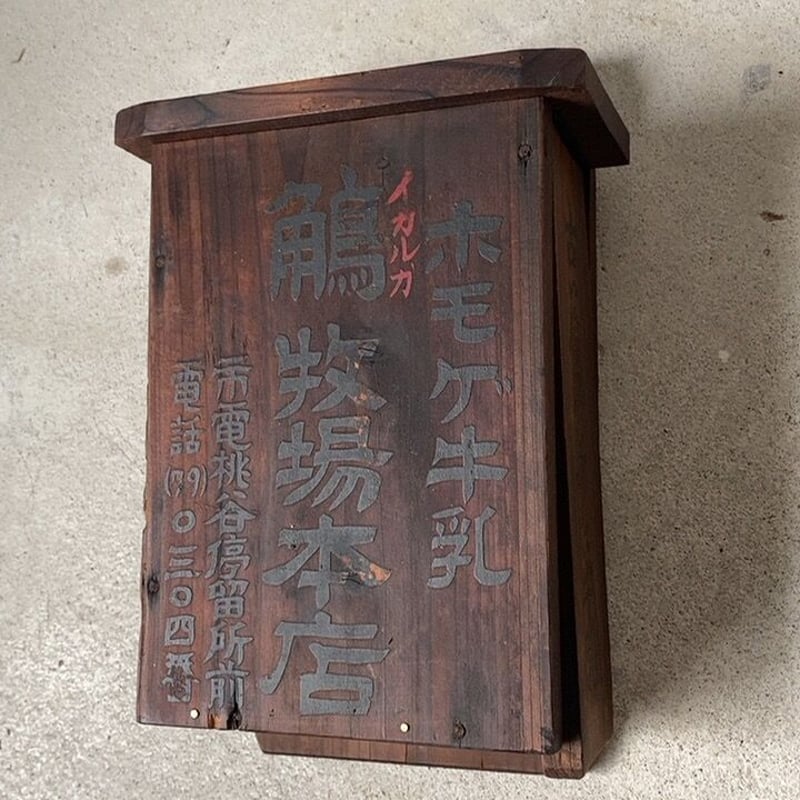 ホモゲ牛乳
イカルガ
鵤牧場本店
市電桃谷停留所前
電話(77)〇三〇四番